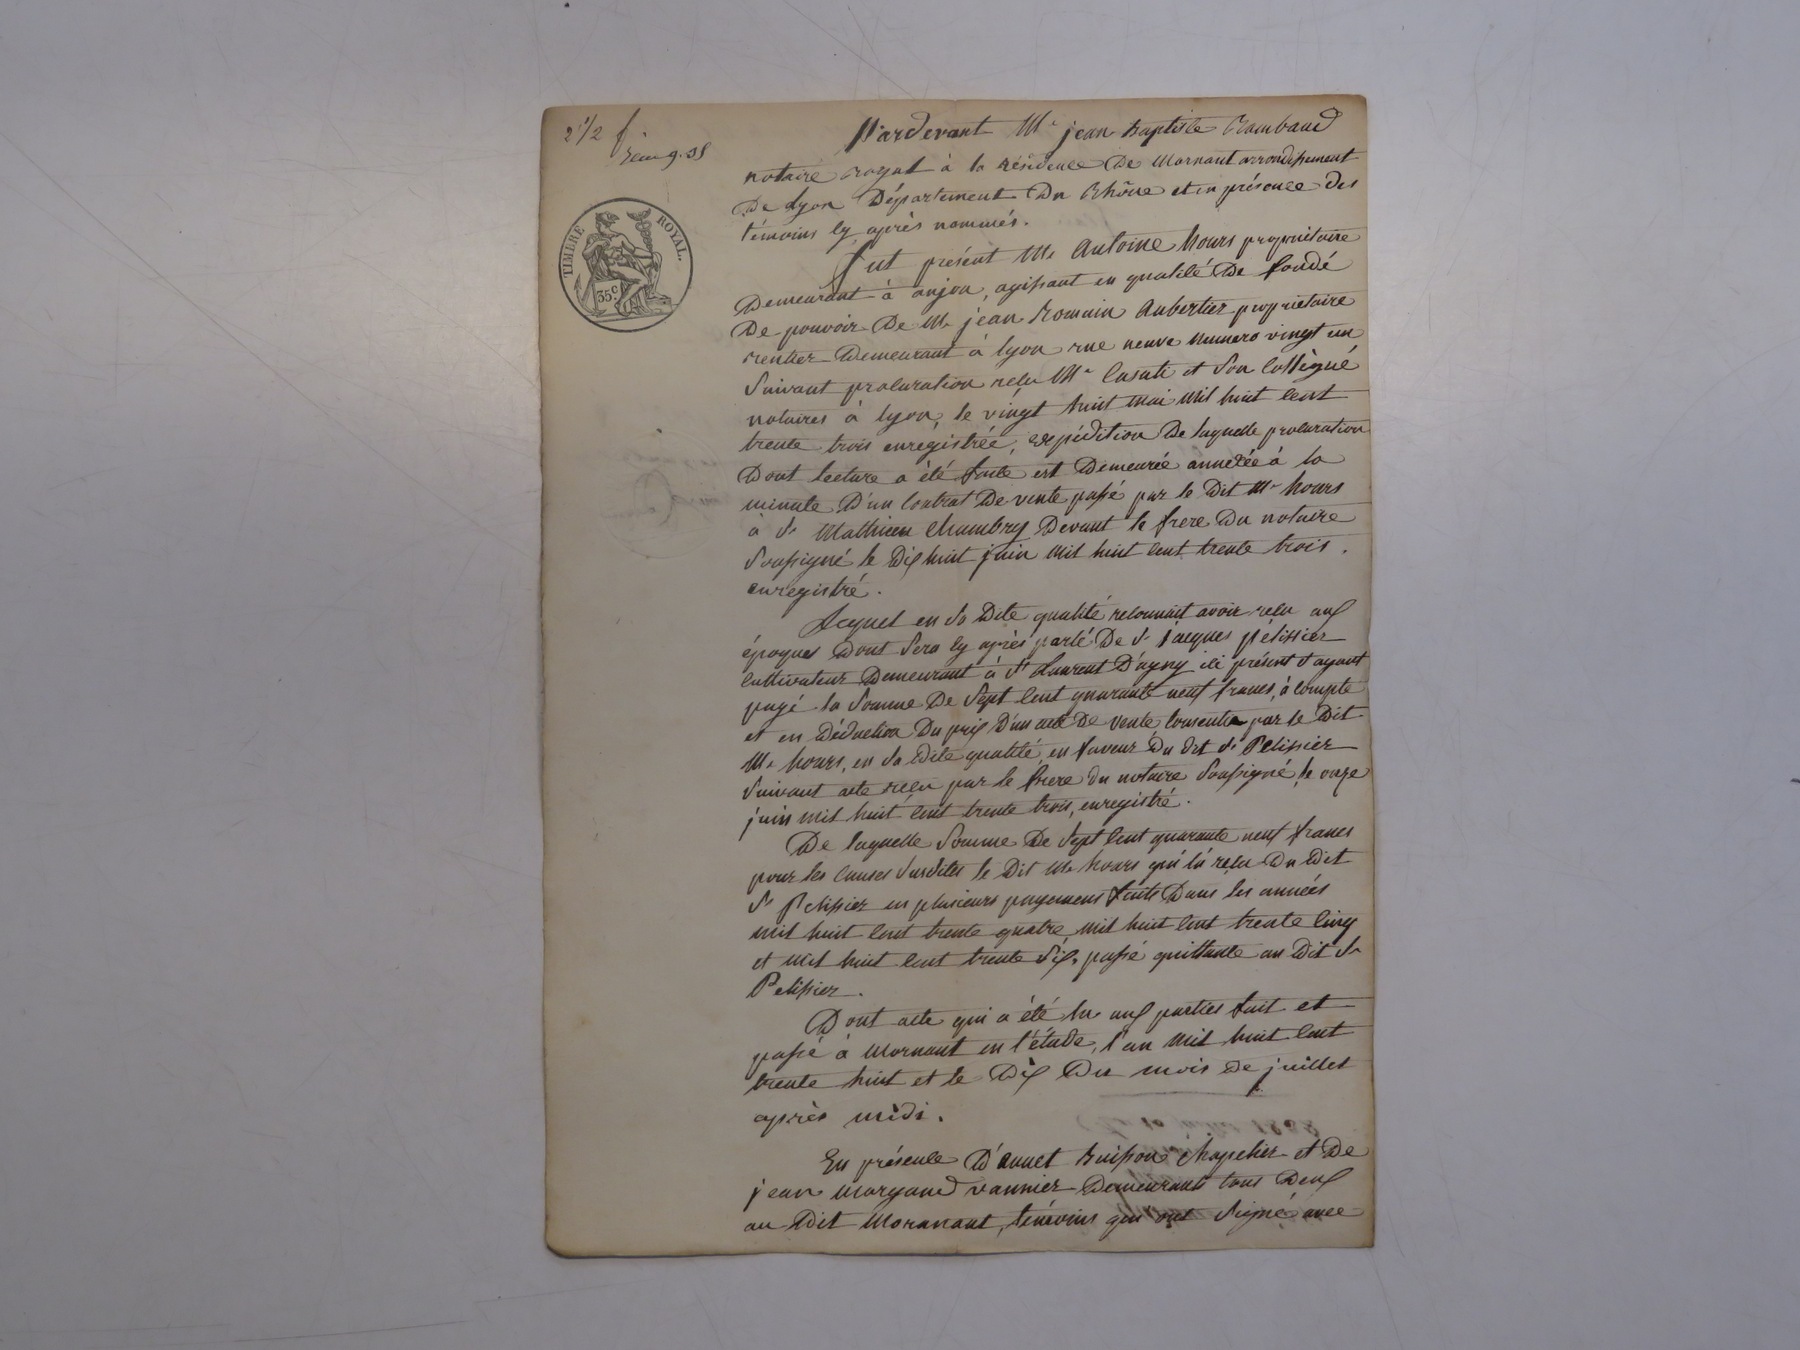 2 1/2 f
TIMBRE ROYAL.
35 c
Pardevant Me jean Baptiste Rambaud
notaire royal à la résidence De Mornant arrondissement
De Lyon Département Du Rhône et en présence des
témoins cy après nommés.
fut présent Mr Antoine hours propriétaire
Demeurant à anjou, agissant en qualité De fondé
De pouvoir De Mr jean Romain Aubertier propriétaire
rentier Demeurant à lyon rue neuve Numero vingt un
Suivant procuration reçu Me Casati et Son Collègue
notaires à lyon, le vingt huit mai mil huit Cent
trente trois enregistrée, expédition De laquelle procuration
Dont lecture a été faite est Demeurée annexée à la
minute D'un Contrat De vente passé par le Dit Mr hours
à St Mathieu Chambry Devant le frere Du notaire
Soussigné le Dix huit juin mil huit Cent trente trois.
enregistré.
Lequel en Sa Dite qualité reconnait avoir reçu aux
époques Dont Sera cy après parlé De Sr jacques pélissier
Cultivateur Demeurant à St Laurent D'agny ici présent S'ayant
payé la Somme De Sept Cent quarante neuf francs, à Compte
et en Déduction Du prix D'un acte De vente Consentie par le Dit
Mr hours, en Sa Dite qualité, en faveur Du Dit Sr Pelissier
Suivant acte reçu par le frere du notaire Soussigné, le onze
juin mil huit Cent trente trois, enregistré.
De laquelle Somme De Sept Cent quarante neuf francs
pour les Causes Susdites le Dit Mr hours qui l'a reçu Du Dit
Sr Pelissier en plusieurs payemens faits Dans les années
mil huit Cent trente quatre mil huit Cent trente Cinq
et mil huit Cent trente Six, passé quittance au Dit Sr
Pelissier.
Dont acte qui a été lu aux parties fait et
passé à Mornant en l'étude, l'an mil huit Cent
trente huit et le Dix Du mois De juillet
après midi.
En présence D'annet Buisson Chapelier et De
jean Margand vannier Demeurants tous Deux
au Dit Moranant, témoins qui ont Signé avec